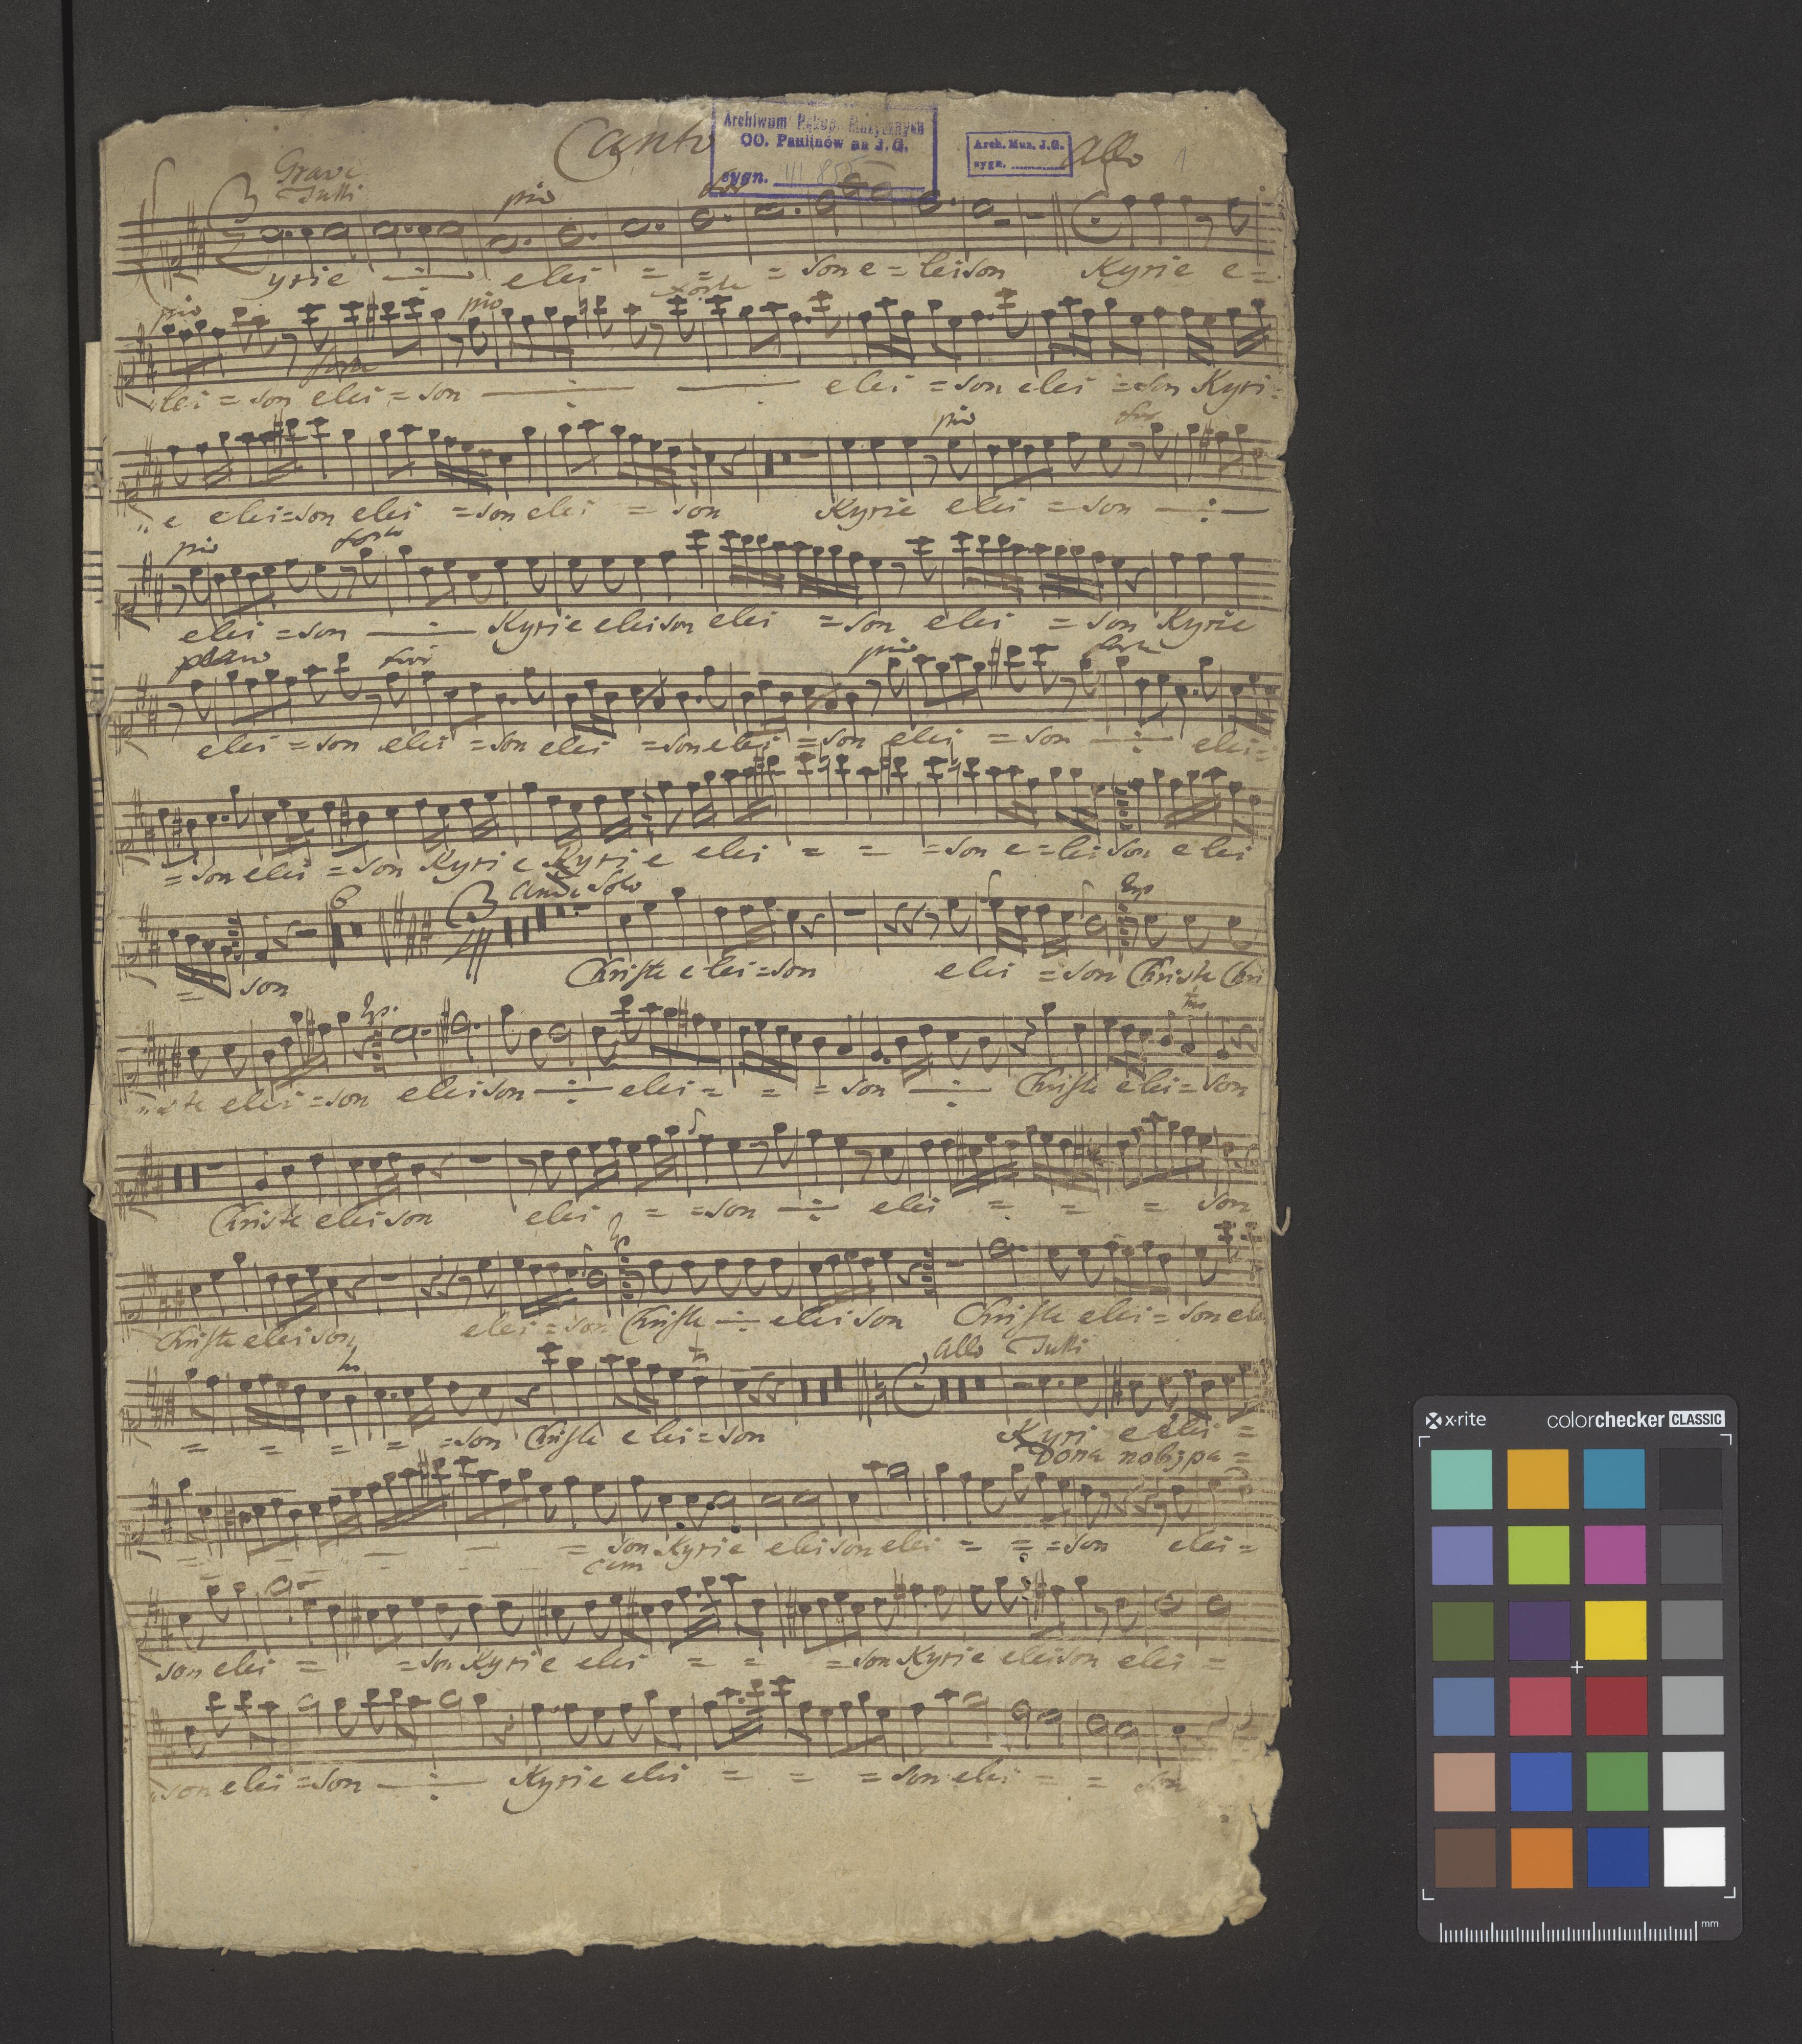 Canto
Archiwum Rękop. Muzycznych
OO. Paulinów na J.G.
sygn. III 855
Arch. Muz. J.G.
sygn.
Allo 1
Grave
Tutti
pio for
yrie elei = = = son e = leison Kyrie e =
pio forte pio forte
lei = son elei = son elei = son elei = son Kyri =
pio for
e elei = son elei = son elei = son Kyrie elei = son
pio forte
elei = son Kyrie eleison elei = son elei = son Kyrie
piano for pio forte
elei = son elei = son elei = son elei = son elei = son elei =
= son elei = son Kyrie Kyrie elei = = = son e = lei son elei
6 3 Andte Solo
= son Christe elei = son elei = son Christe Chri
iste elei = son eleison elei = = = son Christe elei = son
Christe eleison elei = = son elei = = = son
Christe eleison elei = son Christe eleison Christe elei = son elei
Allo Tutti
= = = = = son Christe elei = son Kyri e elei =
Dona nobis pa =
= = = = = son Kyrie eleison elei = = = son elei =
cem
son elei = = son Kyrie elei = = = son Kyrie eleison elei =
son elei = son Kyrie elei = = = son elei = = son
x·rite colorchecker CLASSIC
mm